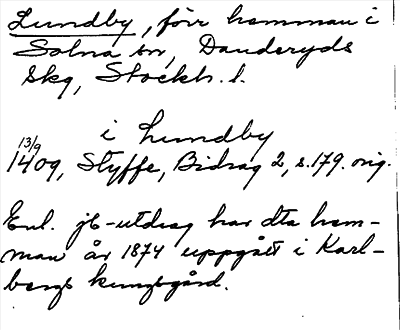 Lundby, förr hemman i
Solna sn, Danderyds
skg, Stockh. l.
i Lundby
13/9
1409, Styffe, Bidrag 2, s. 179. orig.
Enl. jb-utdrag har dta hem-
man år 1874 uppgått i Karl-
bergs kungsgård.